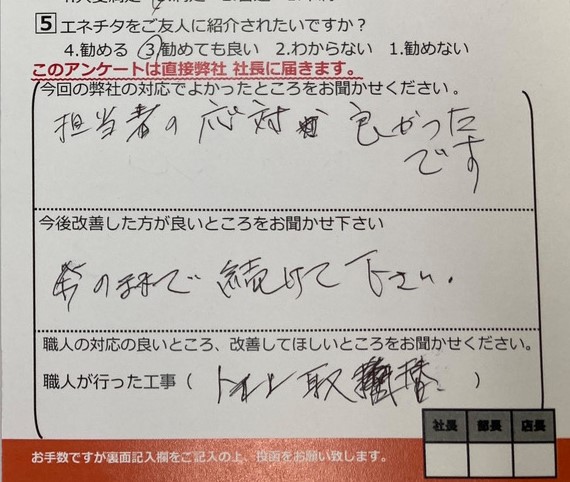 5 エネチタをご友人に紹介されたいですか？
4.勧める 3勧めても良い 2.わからない 1.勧めない
このアンケートは直接弊社 社長に届きます。
今回の弊社の対応でよかったところをお聞かせください。
担当者の応対が良かった
です
今後改善した方が良いところをお聞かせ下さい
今のままで続けて下さい.
職人の対応の良いところ、改善してほしいところをお聞かせください。
職人が行った工事（トイレ取替）
社長 部長 店長
お手数ですが裏面記入欄をご記入の上、投函をお願い致します。